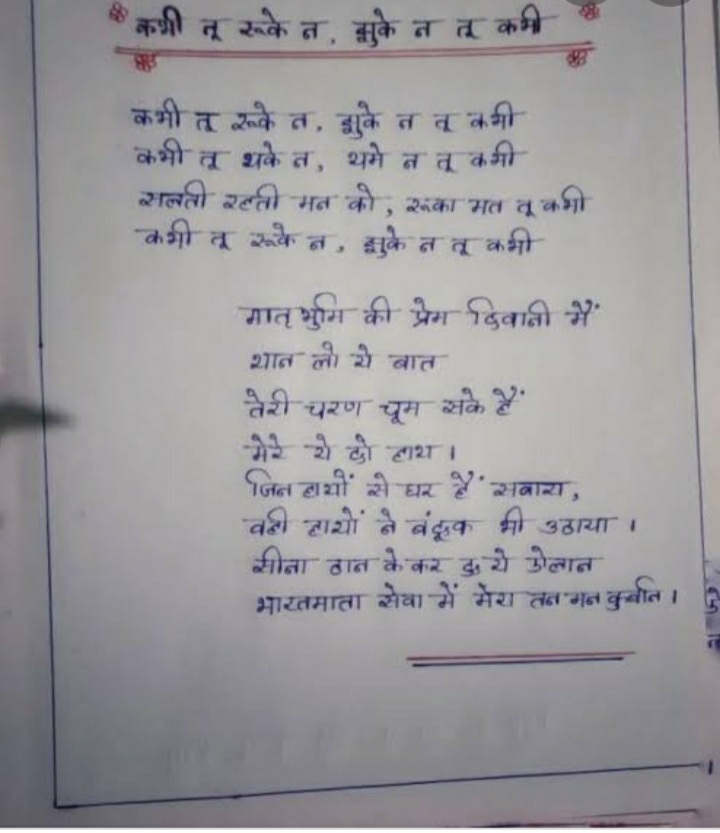 कभी तू रूके न, झुके न तू कभी
कभी तू रूके न, झुके न तू कभी
कभी तू थके न, थमे न तू कभी
सलती रहती मन को, रूका मत तू कभी
कभी तू रूके न, झुके न तू कभी
मातृभुमि की प्रेम दिवानी मैं
थान लो ये बात
तेरी चरण चूम सके हैं
मेरे ये दो हाथ।
जिन हाथों से घर हैं सवारा,
वही हाथों ने बंदूक भी उठाया।
सीना ठान के कर दु ये ऐलान
भारतमाता सेवा में मेरा तन मन कुर्बान।